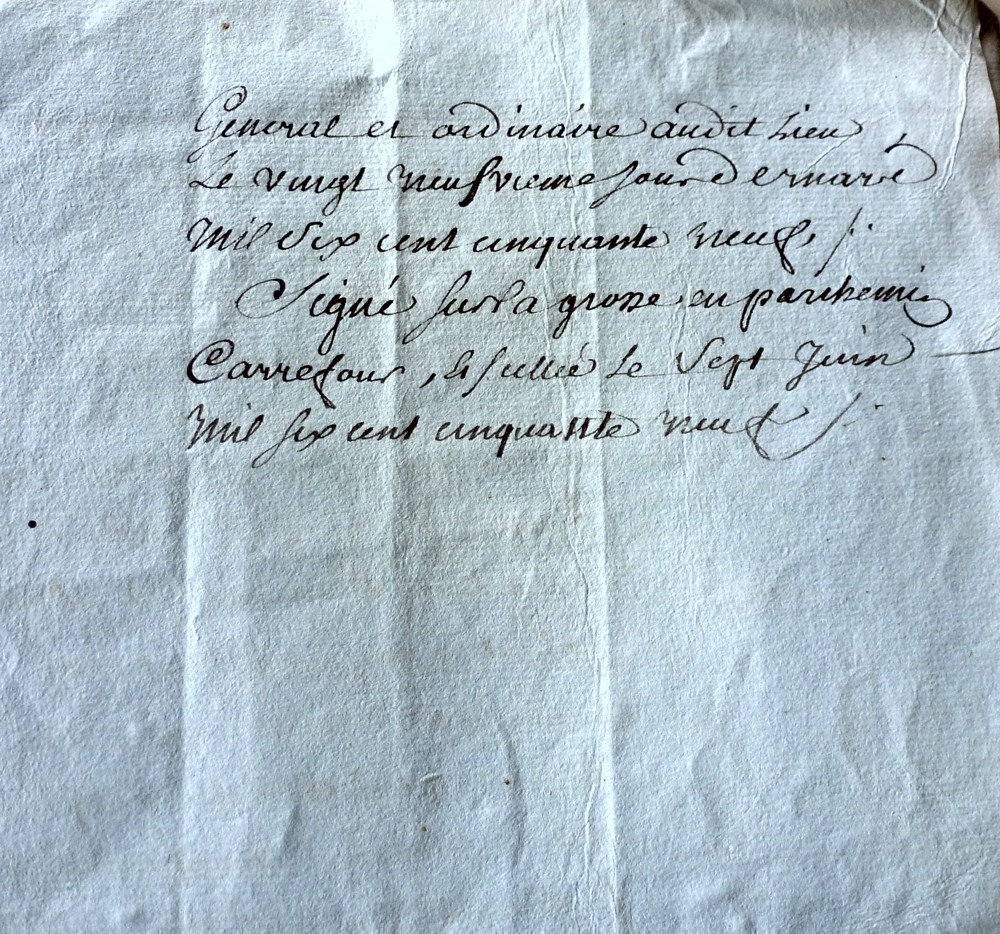 General et ordinaire audit Lieu,
Le vingt neufvieme Jour de mars
Mil Six cent cinquante neuf ./.
Signé sur la grosse en parchemin
Carrefour, et scellée Le Sept Juin
Mil six cent cinquante neuf ./.